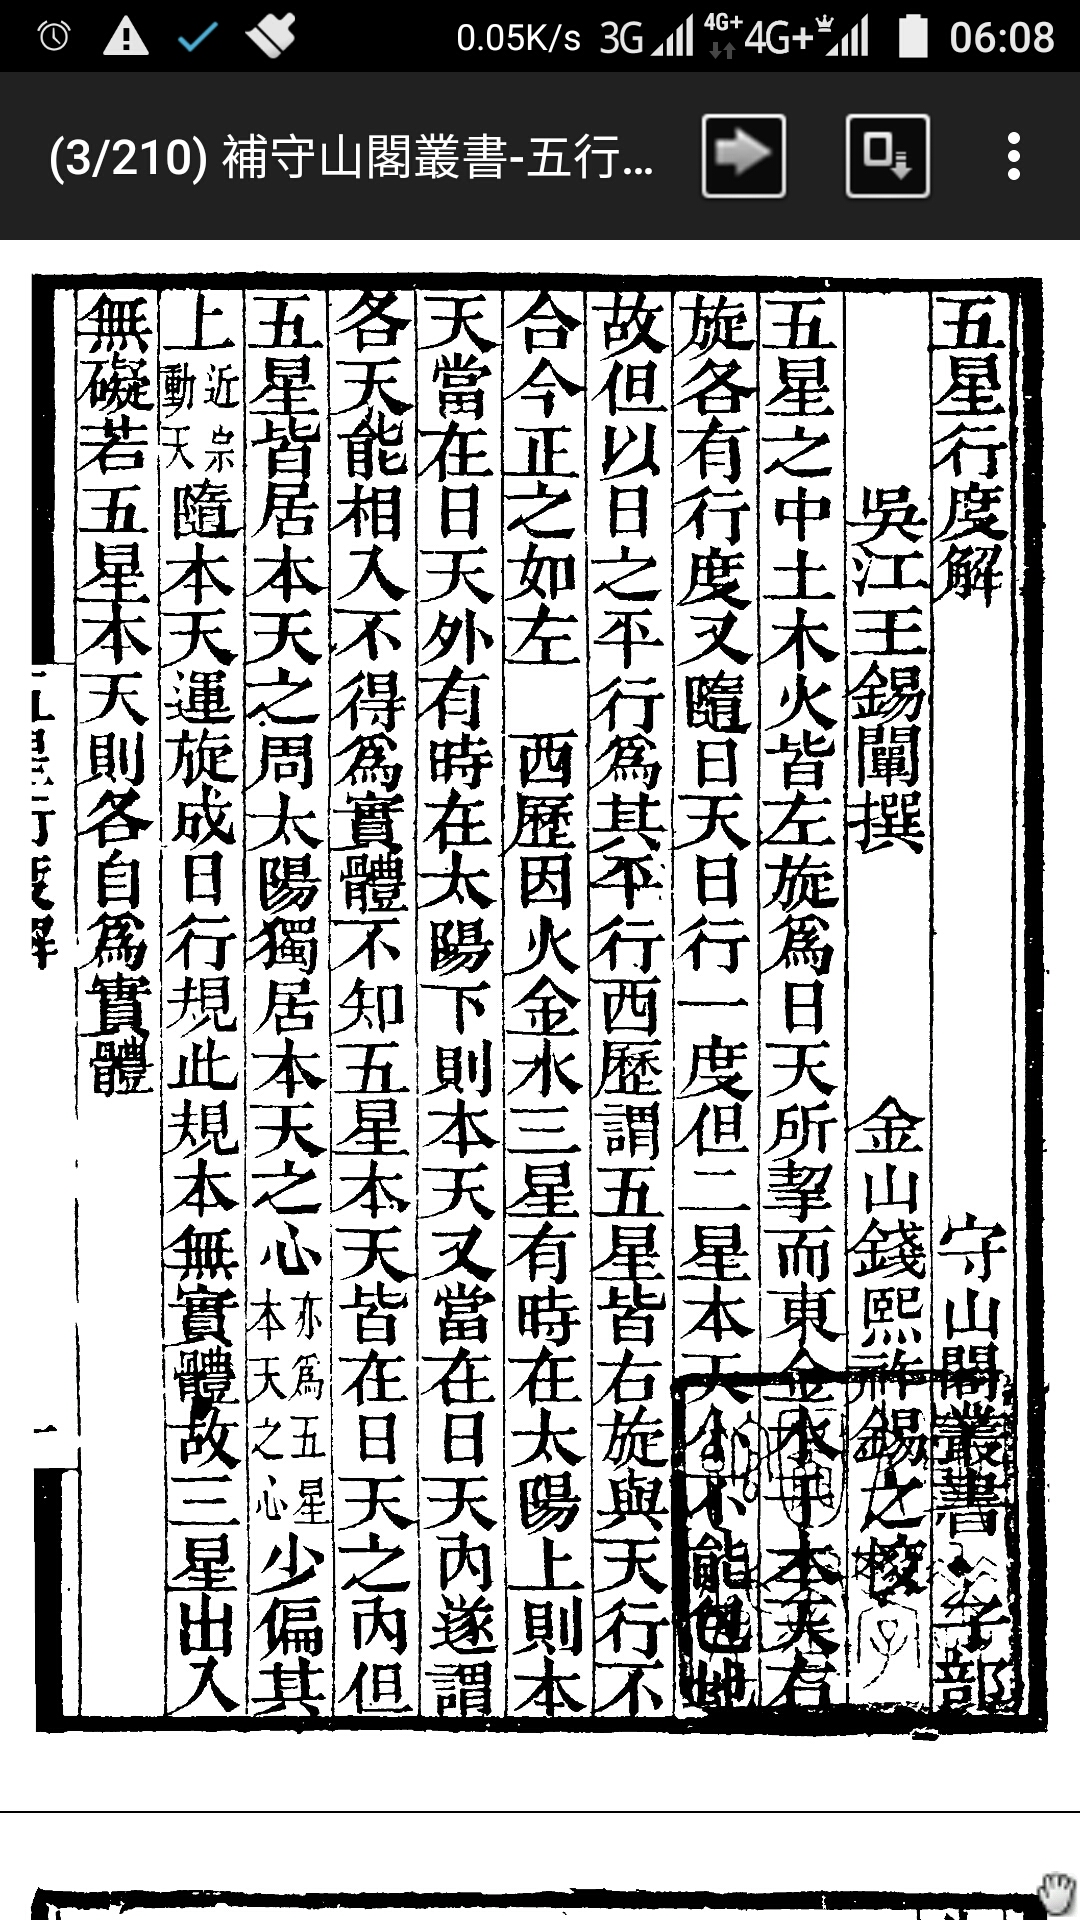 0.05K/s 3G 4G+ 4G+ 06:08
(3/210) 補守山閣叢書-五行...
五星行度解 守山閣叢書 子部
吳江王錫闡撰 金山錢熙祚錫之校
五星之中土木火皆左旋爲日天所挈而東金水于本天右
旋各有行度又隨日天日行一度但二星本天小不能包地
故但以日之平行爲其平行西歷謂五星皆右旋與天行不
合今正之如左 西歷因火金水三星有時在太陽上則本
天當在日天外有時在太陽下則本天又當在日天內遂謂
各天能相入不得爲實體不知五星本天皆在日天之內但
五星皆居本天之周太陽獨居本天之心亦爲五星本天之心少偏其
上近宗動天隨本天運旋成日行規此規本無實體故三星出入
無礙若五星本天則各自爲實體
五星行度解 一